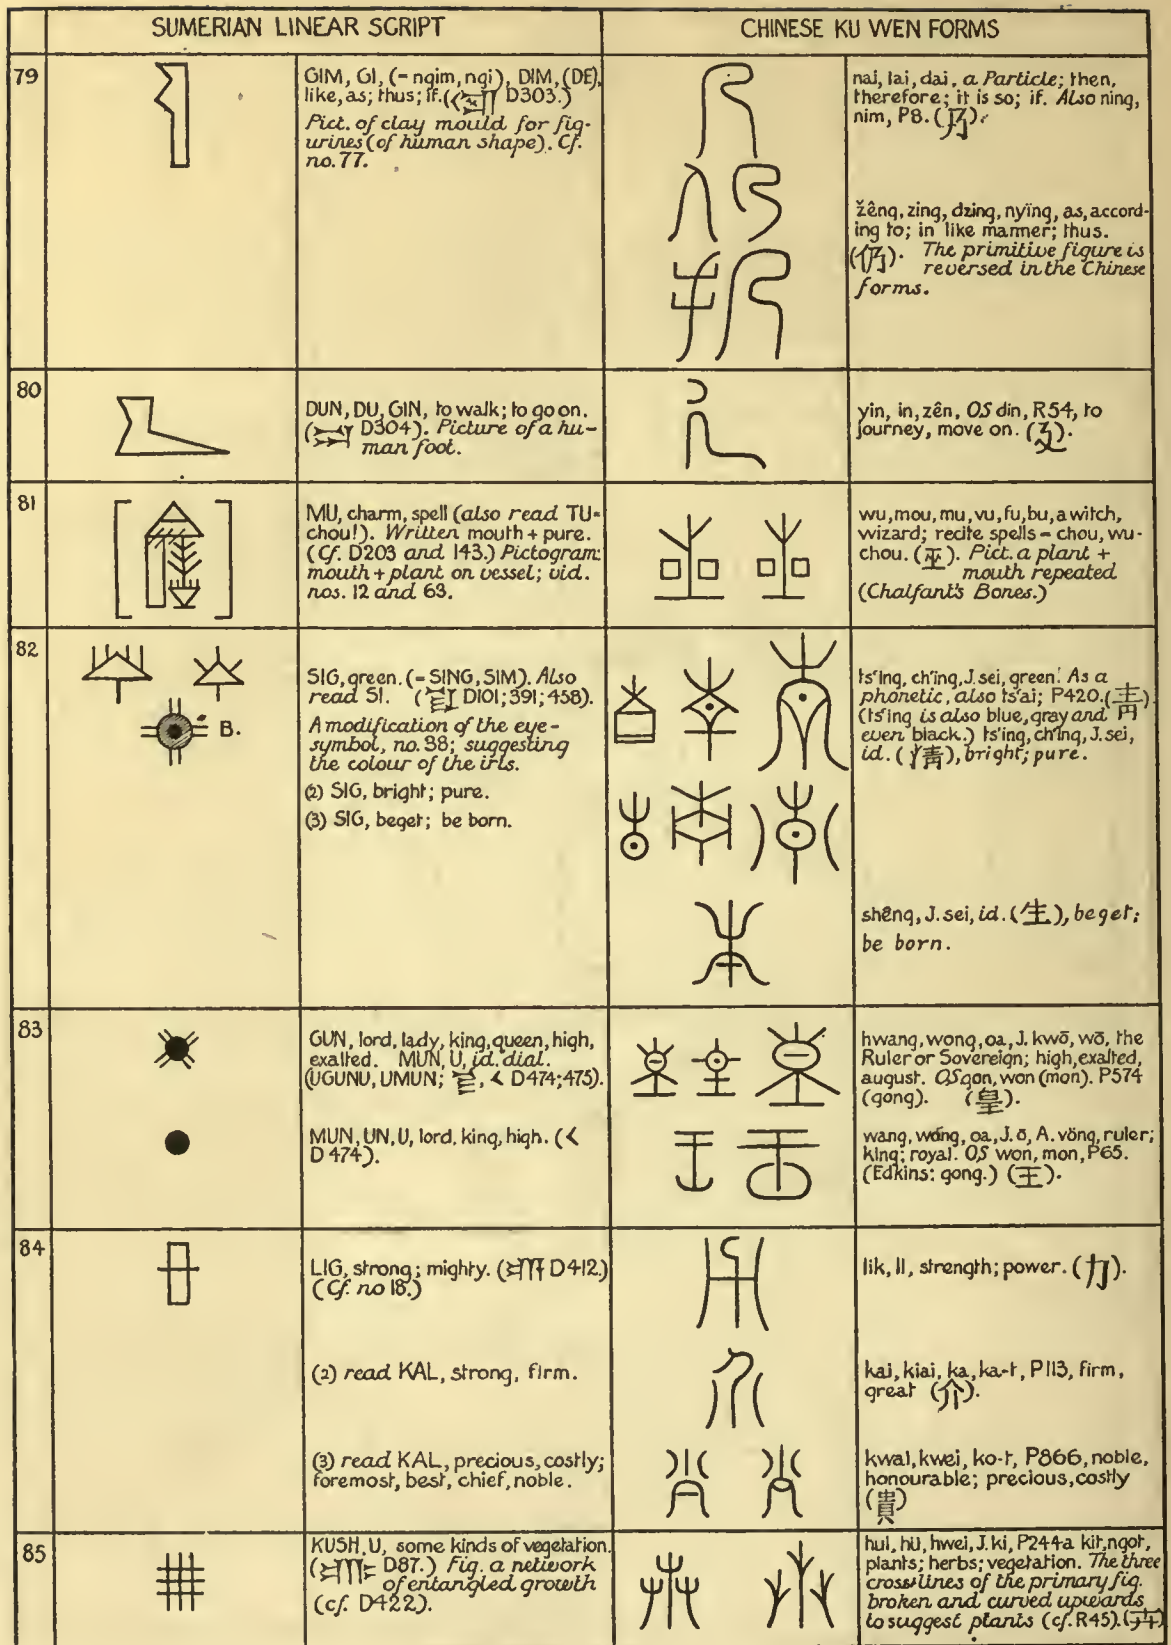 SUMERIAN LINEAR SCRIPT
CHINESE KU WEN FORMS
79
GIM, GI, (= ngim, ngi), DIM, (DE),
like, as; thus; if. ( D303.)
Pict. of clay mould for fig-
urines (of human shape). Cf.
no. 77.
nai, lai, dai, a Particle; then,
therefore; it is so; if. Also ning,
nim, P8. (乃).
žêng, zing, dzing, nying, as, accord-
ing to; in like manner; thus.
(仍). The primitive figure is
reversed in the Chinese
forms.
80
DUN, DU, GIN, to walk; to go on.
( D304). Picture of a hu-
man foot.
yin, in, zên, OS din, R54, to
journey, move on. (廴).
81
MU, charm, spell (also read TU=
chou!). Written mouth + pure.
(Cf. D203 and 143.) Pictogram:
mouth + plant on vessel; vid.
nos. 12 and 63.
wu, mou, mu, vu, fu, bu, a witch,
wizard; recite spells = chou, wu-
chou. (巫). Pict. a plant +
mouth repeated
(Chalfant's Bones.)
82
B.
SIG, green. (= SING, SIM). Also
read SI. ( D101; 391; 458).
A modification of the eye-
symbol, no. 38; suggesting
the colour of the iris.
(2) SIG, bright; pure.
(3) SIG, beget; be born.
ts'ing, ch'ing, J. sei, green. As a
phonetic, also ts'ai; P420. (青)
(ts'ing is also blue, gray and
even black.) ts'ing, ch'ing, J. sei,
id. (清), bright; pure.
shêng, J. sei, id. (生), beget;
be born.
83
GUN, lord, lady, king, queen, high,
exalted. MUN, U, id. dial.
(UGUNU, UMUN; , D474; 475).
MUN, UN, U, lord, king, high. (
D474).
hwang, wong, oa, J. kwō, wō, the
Ruler or Sovereign; high, exalted,
august. OS gon, won (mon). P574
(gong). (皇).
wang, wóng, oa, J. ō, A. vöng, ruler;
king; royal. OS won, mon, P65.
(Edkins: gong.) (王).
84
LIG, strong; mighty. ( D412.)
(Cf. no 18.)
(2) read KAL, strong, firm.
(3) read KAL, precious, costly;
foremost, best, chief, noble.
lik, li, strength; power. (力).
kai, kiai, ka, ka-t, P113, firm,
great (介).
kwai, kwei, ko-t, P866, noble,
honourable; precious, costly
(貴)
85
KUSH, U, some kinds of vegetation.
( D87.) Fig. a network
of entangled growth
(cf. D422).
hui, hü, hwei, J. ki, P244a kit, ngot,
plants; herbs; vegetation. The three
cross lines of the primary fig.
broken and curved upwards
to suggest plants (cf. R45). (卉)